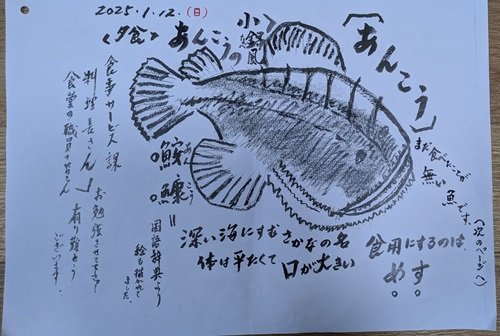 2025.1.12.(日)
〈夕食〉あんこうの小鍋風
〔あんこう〕
まだ食べたことが
無い魚です。
(次のページへ)
食事サービス課
料理長さん
食堂の職員の皆さん
お勉強させて下さって
有り難とう
ございます。
鮟 あん
鱇 こう
=
国語辞典より
絵も描かせて
もらいました。
深い海にすむさかなの名
体は平たくて 口が大きい
食用にするのは
めす。